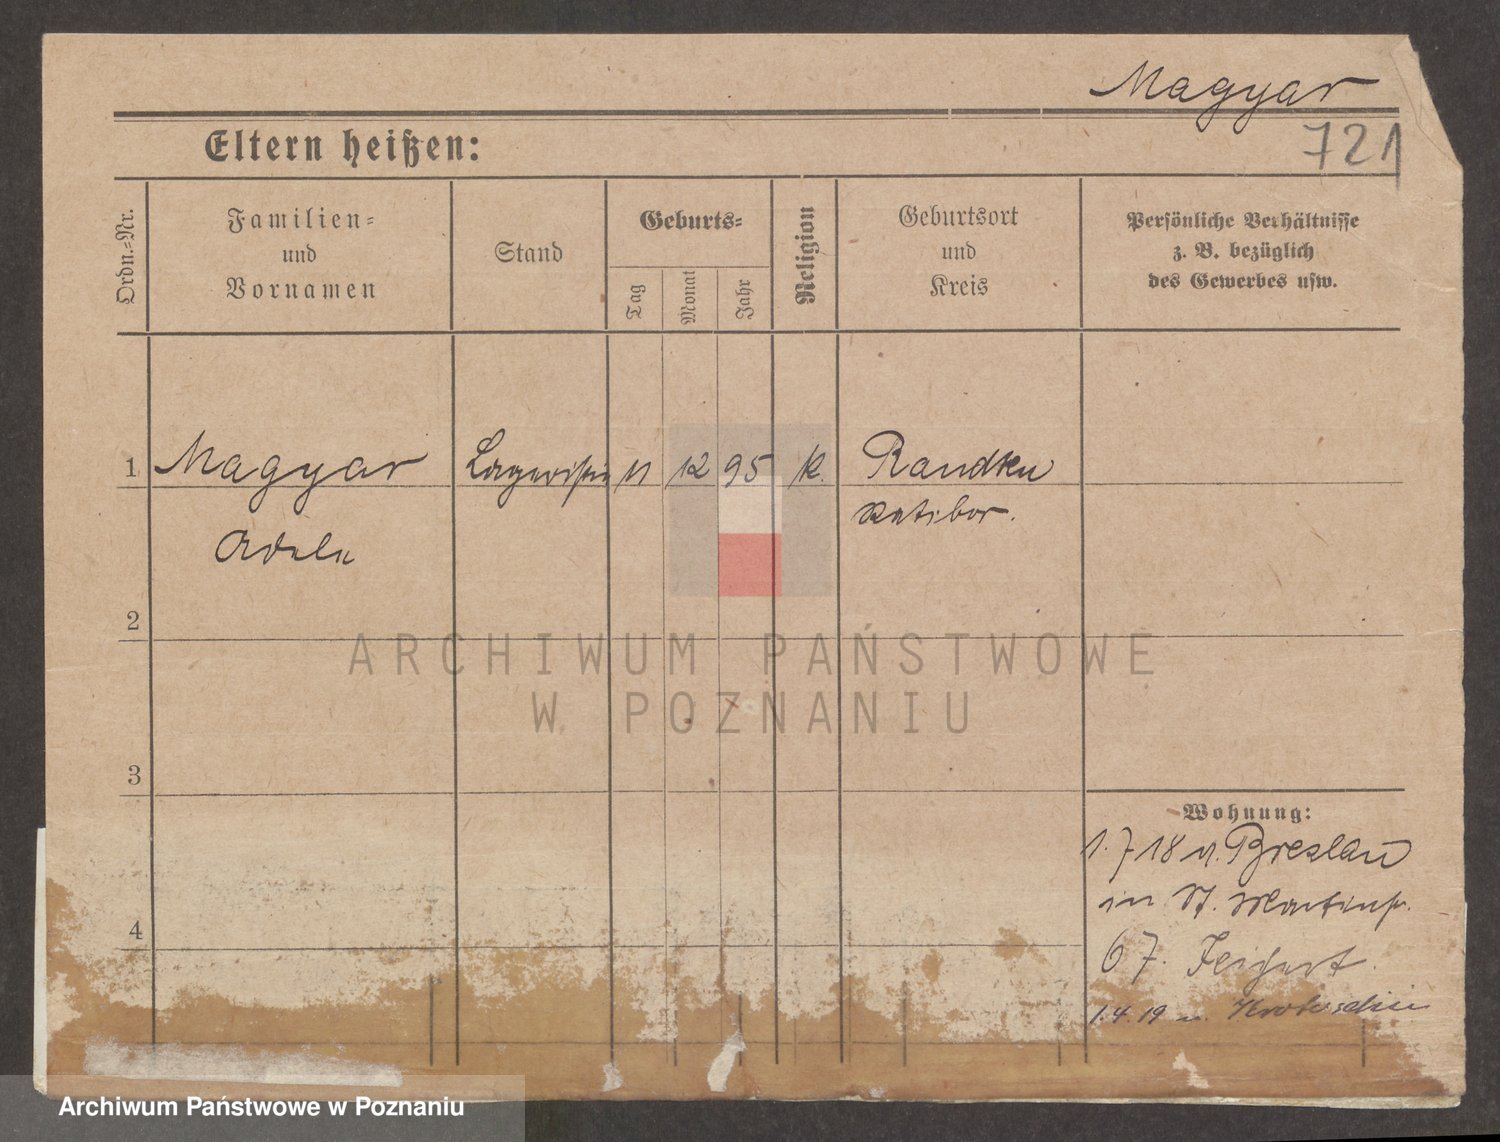 Magyar
721
Eltern heißen:
Ordn.=Nr.
Familien=
und
Vornamen
Stand
Geburts=
Tag
Monat
Jahr
Religion
Geburtsort
und
Kreis
Persönliche Verhältnisse
z. B. bezüglich
des Gewerbes usw.
1 Magyar Lageristin 11 12 95 k. Randten
Ratibor.
Adele
2
ARCHIWUM PAŃSTWOWE
W POZNANIU
3
Wohnung:
1. 7 18 v. Breslau
in St. Martinstr.
4
67. Feichert.
1.4.19 n. Krotoschin
Archiwum Państwowe w Poznaniu